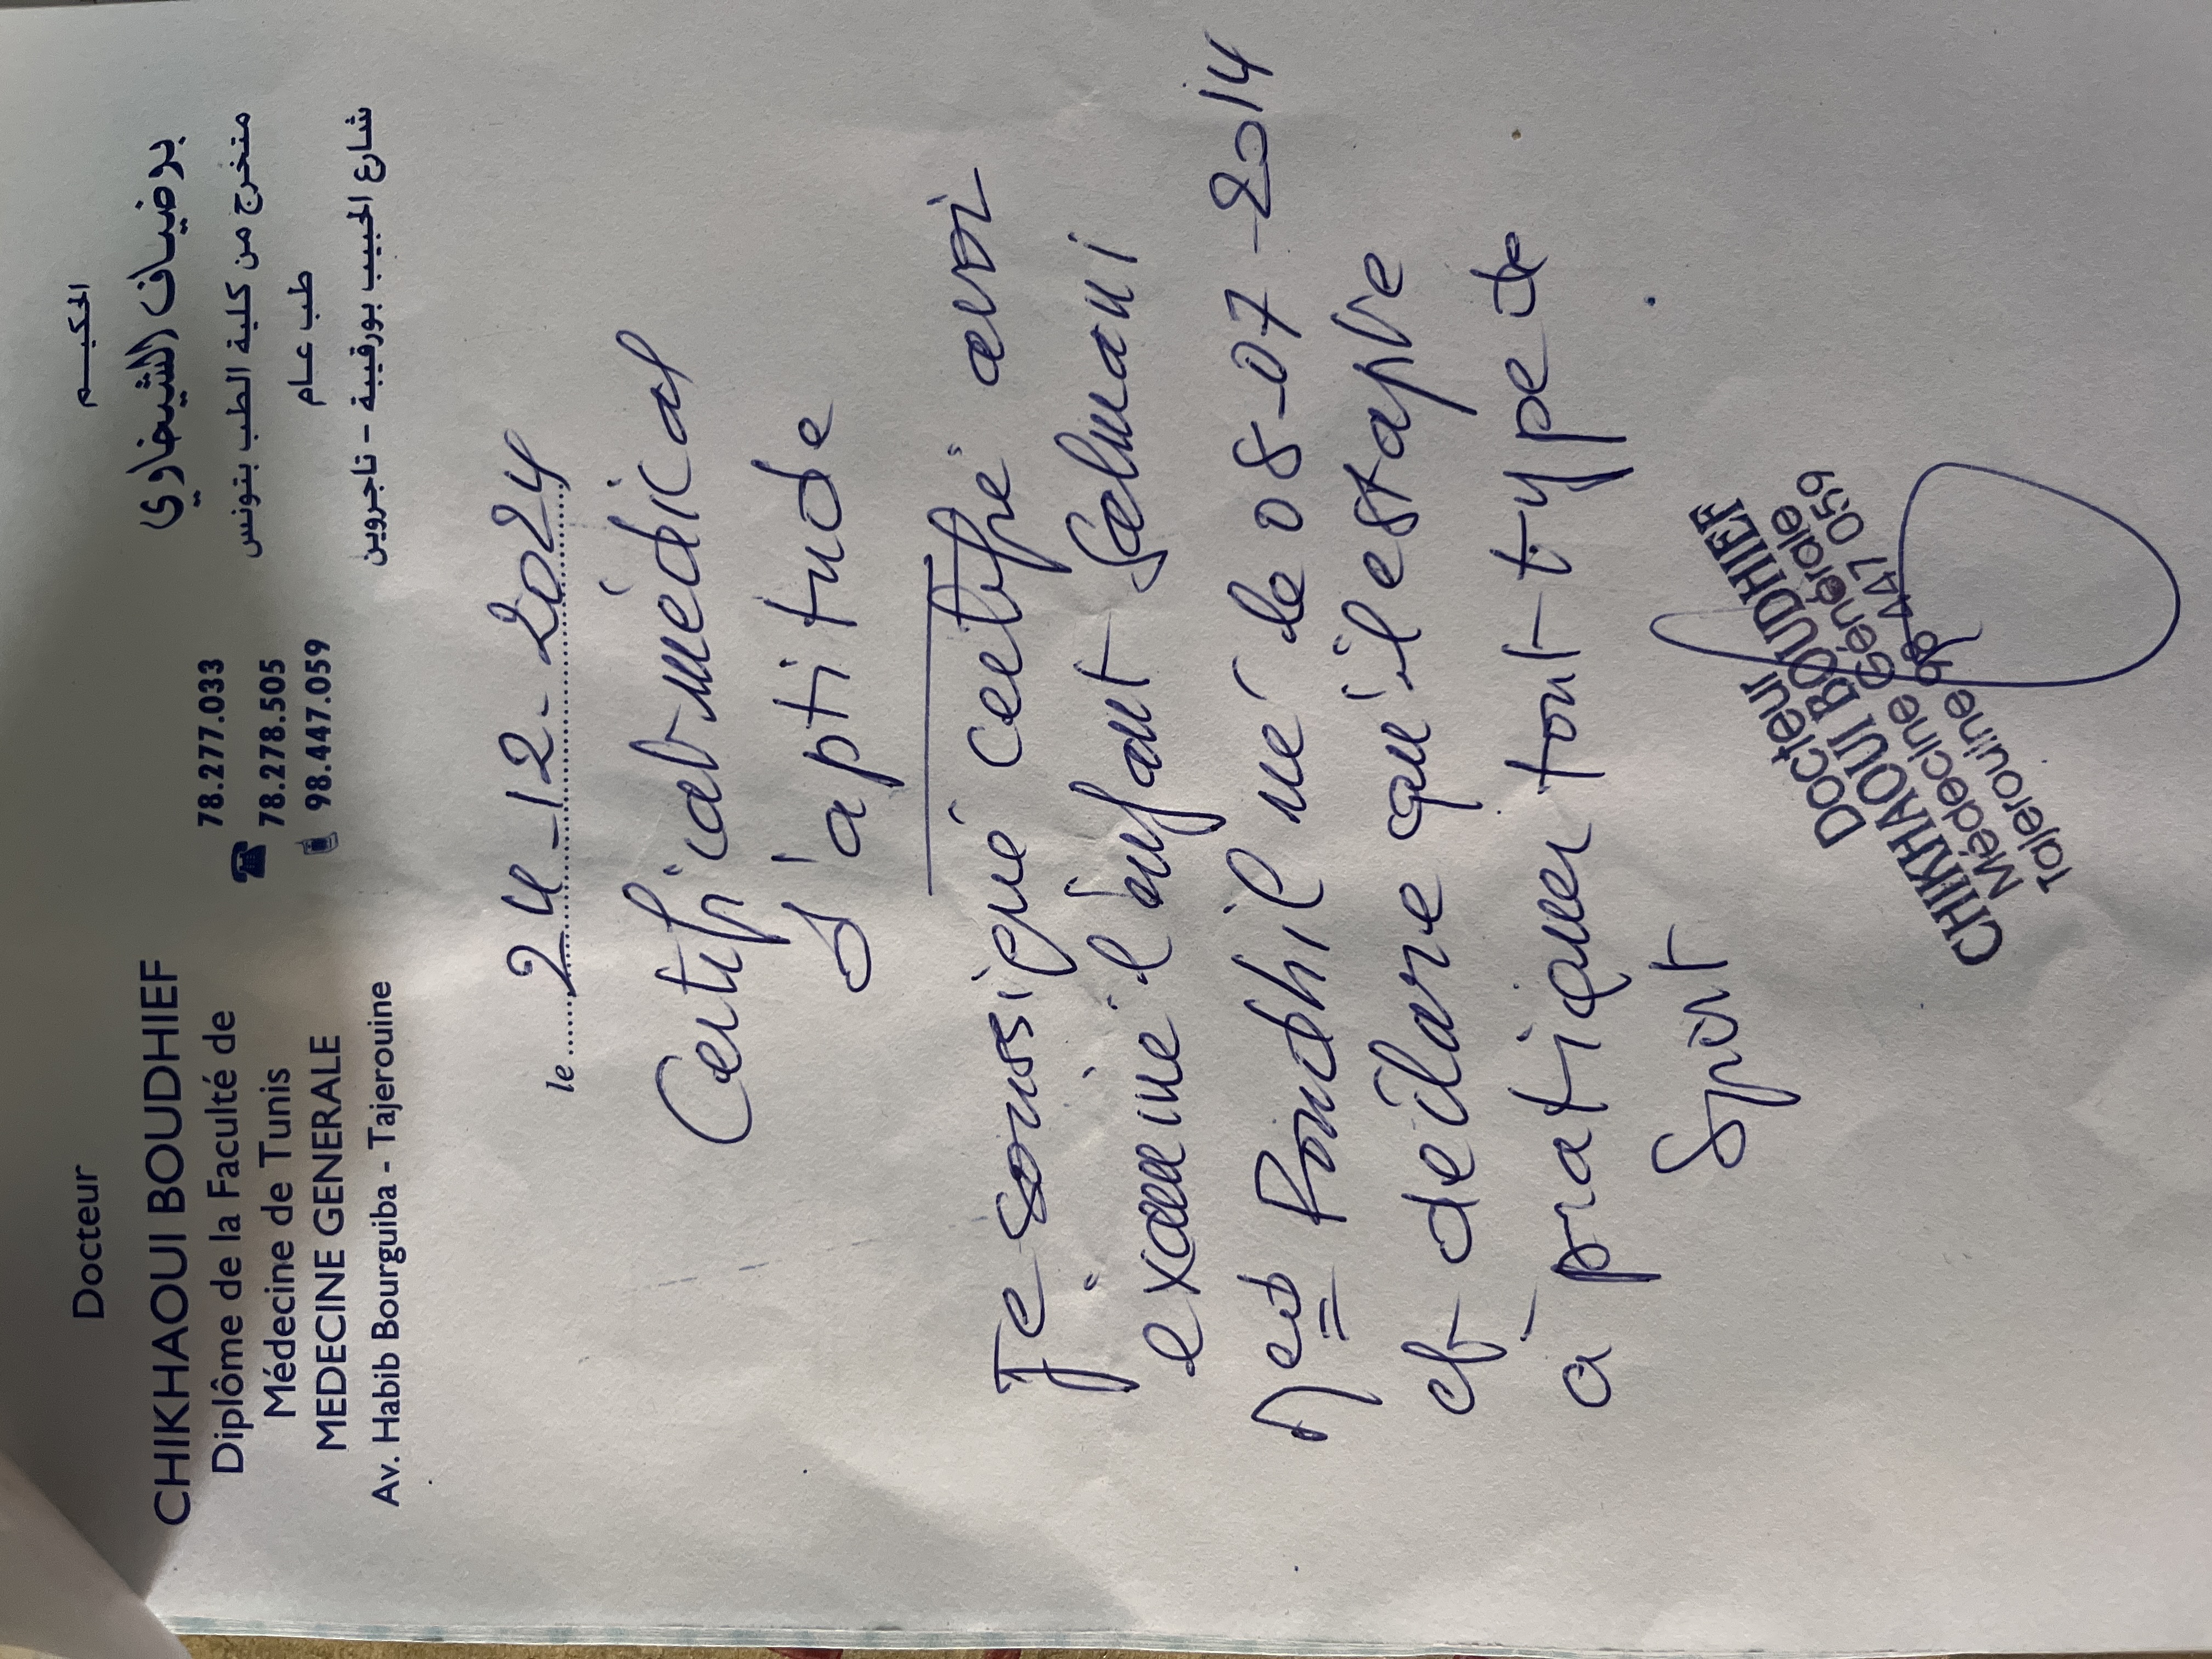 Docteur
CHIKHAOUI BOUDHIEF
Diplôme de la Faculté de
Médecine de Tunis
MEDECINE GENERALE
Av. Habib Bourguiba - Tajerouine
78.277.033
78.278.505
98.447.059
الحكيم
بوضياف الشيخاوي
متخرج من كلية الطب بتونس
طب عام
شارع الحبيب بورقيبة - تاجروين
le 24-12-2024
Certificat médical
d'aptitude
Je soussigné certifie avoi
examiné l'enfant Selmani
né le 08-07-2014
et déclare qu'il est apte
à pratiquer tout type de
Sport
Docteur
CHIKHAOUI BOUDHIEF
Médecine Générale
Tajerouine 98 447 059